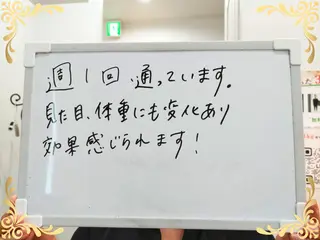 週1回通っています。
見た目、体重にも変化あり
効果感じられます!